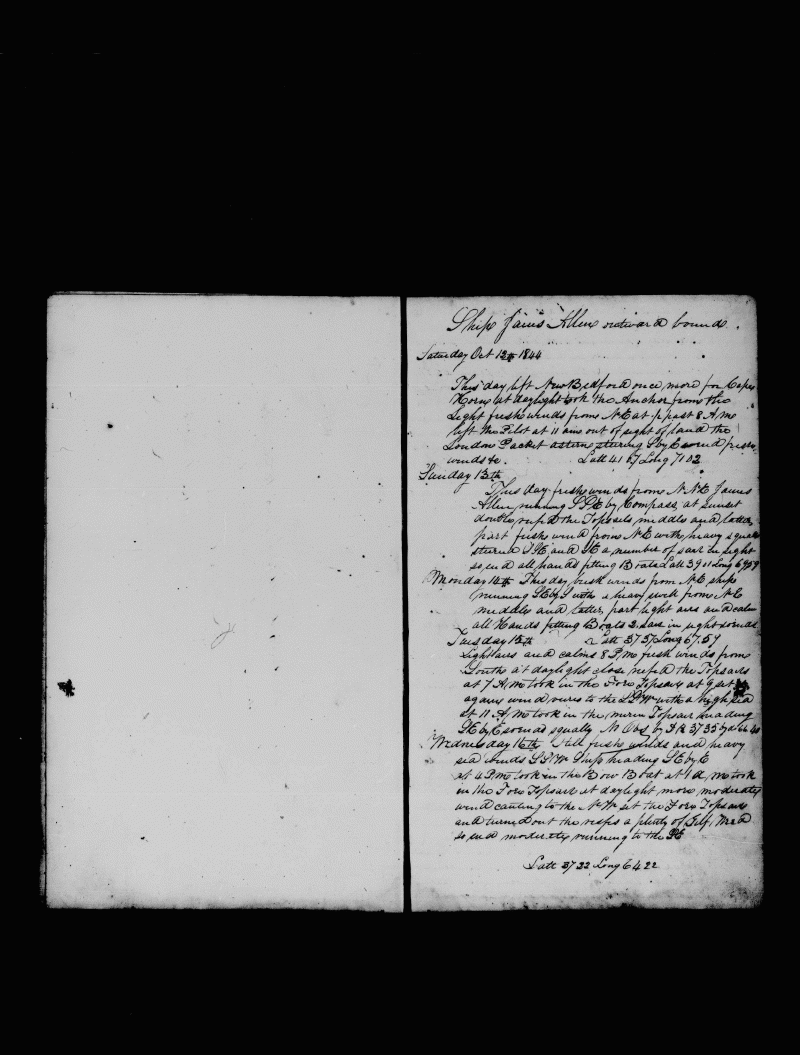 Ship James Allen outward bound.
Saturday Oct 12th 1844
This day left New Bedford once more for Cape
Horn at daylight took the Anchor from the
Light fresh winds from NE at past 8 A.M.
left the Pilot at 11 am out of sight of land the
London Packet astern steering S by E so end fresh
winds &c. Latt 41 07 Long 71 02
Sunday 13th
This day fresh winds from NNE James
Allen running SSE by Compass at sunset
double reefd the Topsails middle and latter
part fresh wind from NE with heavy squalls
steered SE and SE a number of sail in sight
so end all hands fitting Boats Latt 39 01 Long 69 59
Monday 14th This day brisk winds from NE ship
running SE by S with a heavy swell from NE
middle and latter part light airs and calm
all Hands fitting Boats 2 sail in sight so ends
Tuesday 15th Latt 37 57 Long 67.59
Light airs and calms 8 P.M fresh winds from
South at daylight close reefd the Topsails
at 7 A.M took in the Fore Topsail at 9 set it
again wind veres to the SSW with a high sea
at 11 A.M took in the mizen Topsail heading
SE by E so ends squally No Obs by D R 37 35 by d 66 40
Wednesday 16th Still fresh winds and heavy
sea winds SSW Ship heading SE by E
at 4 P.M took in the Bow Boat at 9 d.o took
in the Fore Topsail at daylight more moderate
wind canting to the NW set the Fore Topsail
and turned out the reefs a plenty of Gulf Weed
so end moderately running to the SE
Latt 37 22 Long 64 22